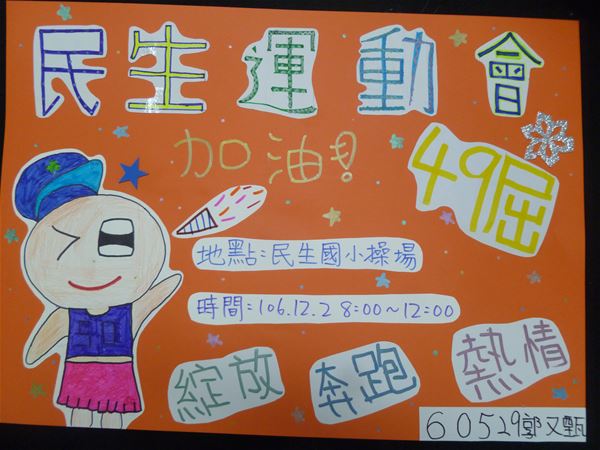 民生運動會
加油!
49屈
地點:民生國小操場
時間:106.12.2 8:00~12:00
綻放 奔跑 熱情
60529郭又甄